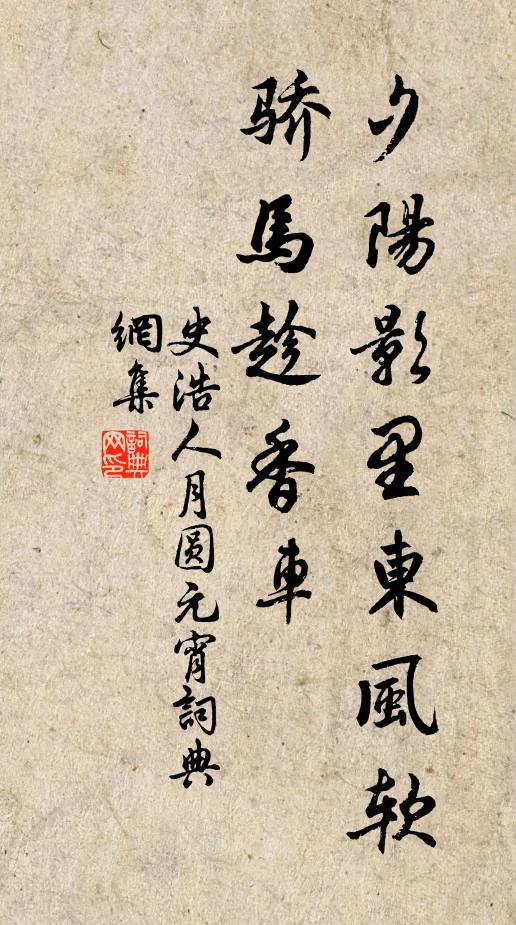 夕陽影里東風软
骄馬趁香車
史浩人月圆元宵詞典
網集
詞典网印